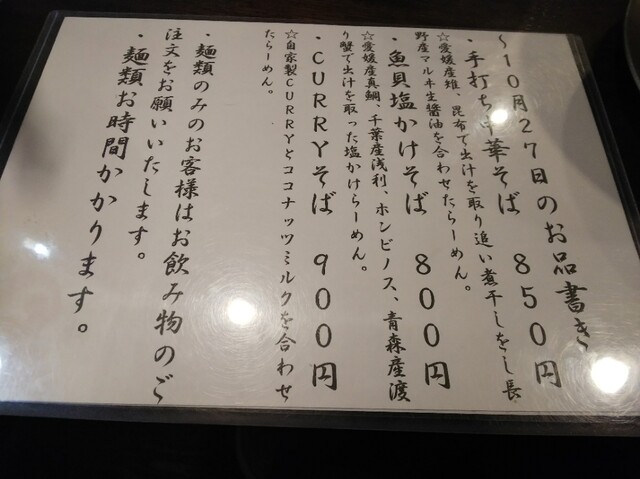 ～１０月２７日のお品書き
・手打ち中華そば　８５０円
☆愛媛産雉、昆布で出汁を取り追い煮干しをし長
野産マルキ生醤油を合わせたらーめん。
・魚貝塩かけそば　８００円
☆愛媛産真鯛、千葉産浅利、ホンビノス、青森産渡
り蟹で出汁を取った塩かけらーめん。
・ＣＵＲＲＹそば　９００円
☆自家製ＣＵＲＲＹとココナッツミルクを合わせ
たらーめん。
・麺類のみのお客様はお飲み物のご
注文をお願いいたします。
・麺類お時間かかります。